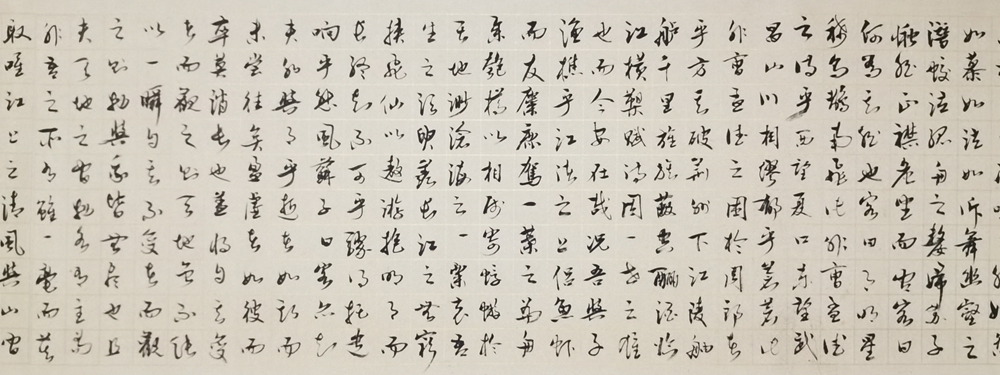 如慕如泣如訴舞幽壑之
潛蛟泣孤舟之嫠婦蘇子
愀然正襟危坐而問客曰
何爲其然也客曰月明星
稀烏鵲南飛此非曹孟德
之詩乎西望夏口東望武
昌山川相繆鬱乎蒼蒼此
非曹孟德之困於周郎者
乎方其破荆州下江陵舳
艫千里旌旗蔽空釃酒臨
江橫槊賦詩固一世之雄
也而今安在哉況吾與子
漁樵乎江渚之上侣魚蝦
而友麋鹿駕一葉之扁舟
舉匏樽以相屬寄蜉蝣於
天地渺滄海之一粟哀吾
生之須臾羨長江之無窮
挾飛仙以遨遊抱明月而
長終知不可乎驟得托遺
响乎悲風蘇子曰客亦知
夫水與月乎逝者如斯而
未嘗往矣盈虛者如彼而
卒莫消長也蓋將自其變
者而觀之則天地曾不能
以一瞬自其不變者而觀
之則物與我皆無盡也且
夫天地之間物各有主苟
非吾之所有雖一毫而莫
取唯江上之清風與山間